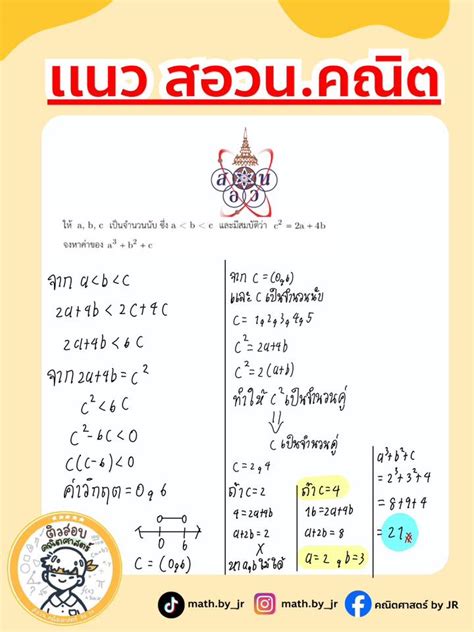 แนว สอวน.คณิต
ส อ ว น
ให้ a, b, c เป็นจำนวนนับ ซึ่ง a < b < c และมีสมบัติว่า c² = 2a + 4b
จงหาค่าของ a³ + b² + c
จาก a<b<c
2a+4b < 2c+4c
2a+4b < 6c
จาก 2a+4b = c²
c² < 6c
c²-6c < 0
c(c-6) < 0
ค่าวิกฤต = 0,6
0 6
c = (0,6)
จาก c = (0,6)
และ c เป็นจำนวนนับ
c = 1,2,3,4,5
c² = 2a+4b
c² = 2(a+b)
ทำให้ c² เป็นจำนวนคู่
⇓
c เป็นจำนวนคู่
c = 2,4
ถ้า c = 2
4 = 2a+4b
a+2b = 2
×
หา a,b ไม่ได้
ถ้า c = 4
16 = 2a+4b
a+2b = 8
a = 2, b = 3
a³+b²+c
= 2³+3²+4
= 8+9+4
= 21
ติวสอบ
คณิตศาสตร์
math.by_jr
math.by_jr
คณิตศาสตร์ by JR